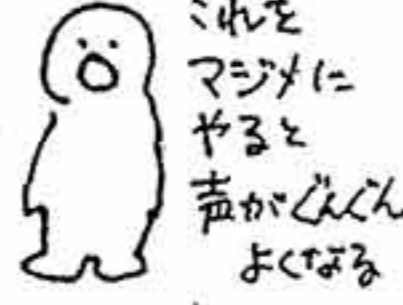 これを
マジメに
やると
声がぐんぐん
よくなる